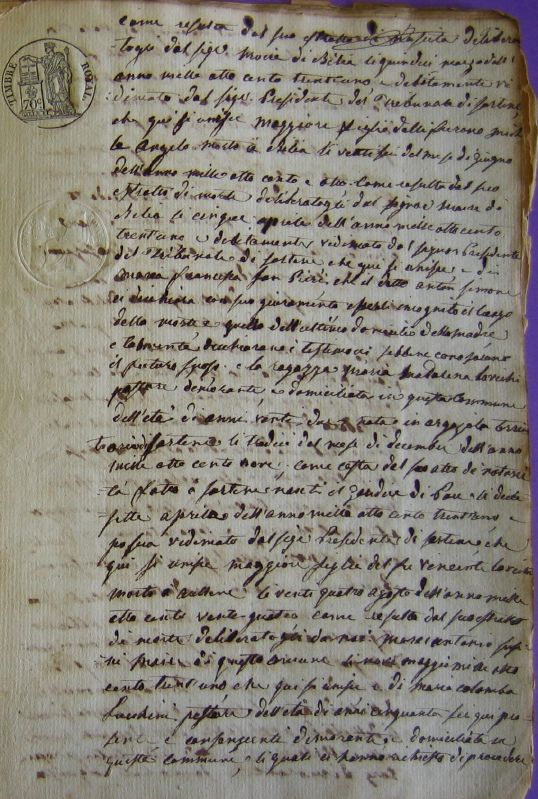 TIMBRE ROYAL
70c
come resulta dal suo di nascita delibera-
togli dal sigr Maire di Bilia li quindici marzo dell'
anno mille otto cento trentuno e debitamente vi
dimato dal sigr Presidente del Tribunale di Sartene
che qui si unisce maggiore figlio delli furono
Angelo morto a Bilia li venti sei del mese di Giugno
dell'anno mille otto cento e otto come resulta dal suo
estratto di morte deliberatogli dal signor Maire di
Bilia li cinque aprile dell'anno mille otto cento
trentuno e debitamente vidimato dal signor Presidente
del Tribunale di Sartene che qui si unisce e di
Maria Francesca che il detto Anton Simone
ci dichiara con suo giuramento incognito il luogo
della morte e quello dell'ultimo domicilio della madre
e dichiarano i testimoci sebbene conoscano
il futuro sposo e la ragazza Maria Madalena
domorante e domiciliata in questa commune
dell'età di anni venti due nata in
Sartene li tredici del mese di decembre dell'anno
mille otto cento nove come costa del suo atto de notorie
tà fatto a Sartene il Giudice di Pace li dicia
sette aprile dell'anno mille otto cento trentuno e
poscia vidimato dal sigr Presidente di Sartene che
qui si unisce maggiore figlia del fu Vincente
morto a li venti quatro agosto dell'anno mille
otto cento venti quatro come resulta dal suo estratto
di morte deliberatogli da noi Marcantonio
Maire di questo comune li nove maggio mille otto
cento trentuno che qui si unisce e di Maria Colomba
dell'età di anni cinquanta sei qui pre
sente e consenziente dimorante e domiciliata in
questa commune, li quali ci hanno richiesto di procedere